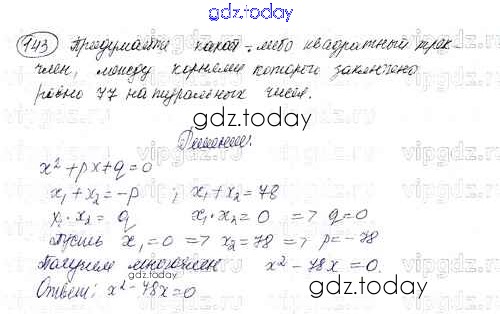 gdz.today
143 Придумайте какой-либо квадратный трех-
член, между корнями которого заключено
ровно 77 натуральных чисел.
gdz.today
Решение:
x² + px + q = 0
x₁ + x₂ = -p ; x₁ + x₂ = 78
x₁ · x₂ = q x₁ · x₂ = 0 => q = 0
Пусть x₁ = 0 => x₂ = 78 => p = -78
Получаем многочлен x² - 78x = 0.
Ответ: x² - 78x = 0
gdz.today
gdz.today